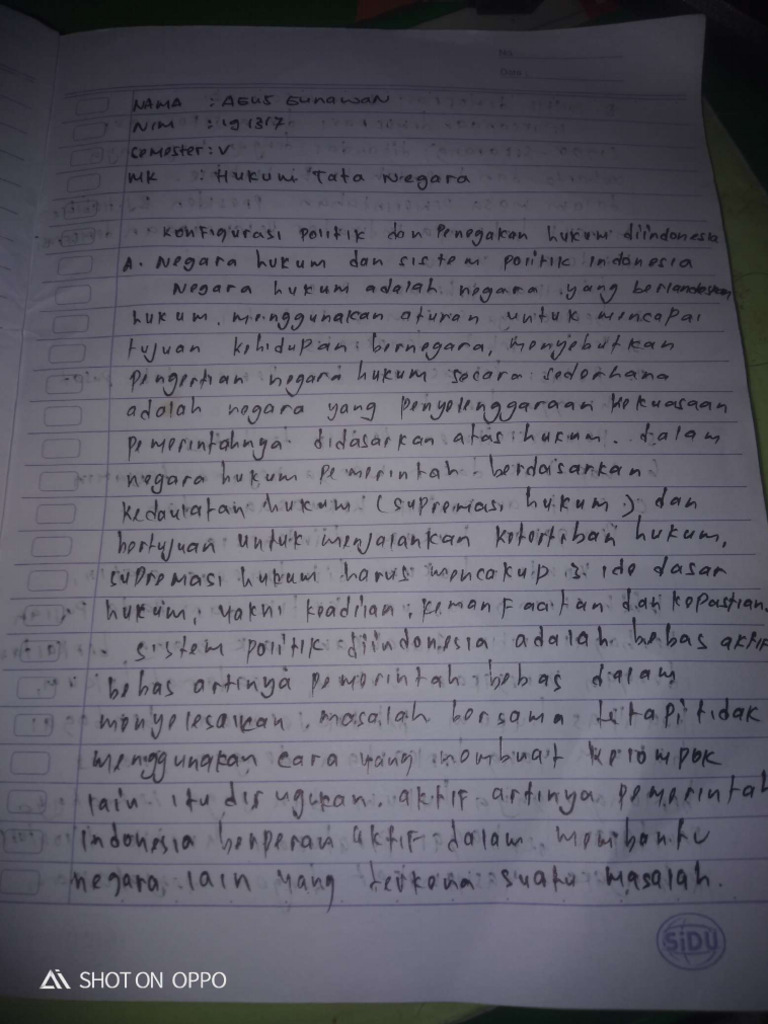 No
Date
NAMA : AGUS Gunawan
NIM : 191317
Semester : V
MK : Hukum Tata Negara
Konfigurasi politik dan Penegakan hukum diindonesia
A. Negara hukum dan sistem politik indonesia
Negara hukum adalah negara yang berlandaskan
hukum, menggunakan aturan untuk mencapai
tujuan kehidupan bernegara, menyebutkan
pengertian negara hukum secara sederhana
adalah negara yang penyelenggaraan kekuasaan
pemerintahnya didasarkan atas hukum. dalam
negara hukum pemerintah berdasarkan
kedaulatan hukum (supremasi hukum) dan
bertujuan untuk menjalankan ketertiban hukum,
supremasi hukum harus mencakup 3 ide dasar
hukum, yakni keadilan, kemanfaatan dan kepastian.
sistem politik diindonesia adalah bebas aktif
bebas artinya pemerintah bebas dalam
menyelesaikan masalah bersama tetapi tidak
menggunakan cara yang membuat kelompok
lain itu dirugikan. aktif artinya pemerintah
indonesia berperan aktif dalam membantu
negara lain yang terkena suatu masalah.
SiDU
SHOT ON OPPO